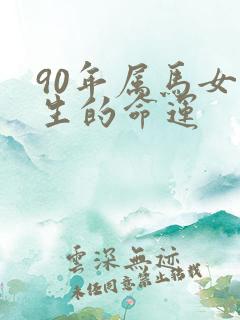 90年属马女
生的命运
雲深無迹
未经同意禁止转载